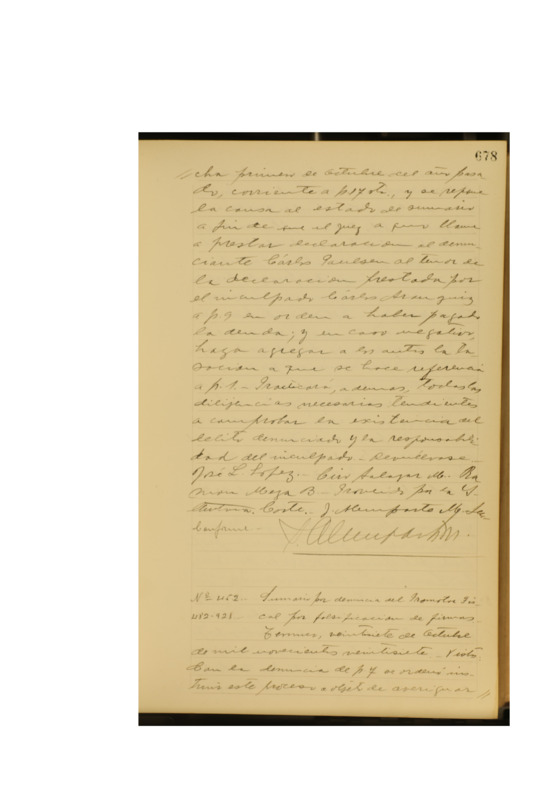 678
cha primero de Octubre del año pasa
do, corriente a f. 17 vta., y se repone
la causa al estado de sumario
a fin de que el juez a quo llame
a prestar declaracion al denun-
ciante Cárlos Paulsen al tenor de
la declaracion prestada por
el inculpado Cárlos Aranguiz
a f. 9 en orden a haber pagado
la deuda; y en caso negativo
haga agregar a los autos la ta
sacion a que se hace referencia
a f. 1.- Practicará, ademas, todas las
diligencias necesarias tendientes
a comprobar la existencia del
delito denunciado y la responsabili
dad del inculpado.- Devuélvase.-
José L. Lopez.- Ciro Salazar M.- Ra
mon Meza B.- Proveido por la I.
Corte.- J. Momparte M. Sec
Conforme.-
Nº 2152.- Sumario por denuncia del Promotor Fis-
cal por falsificacion de firmas
Temuco, veintisiete de Octubre
de mil novecientos veintisiete.- Vistos:
Con la denuncia de f. 7 se ordenó ins-
truir este proceso a objeto de averiguar